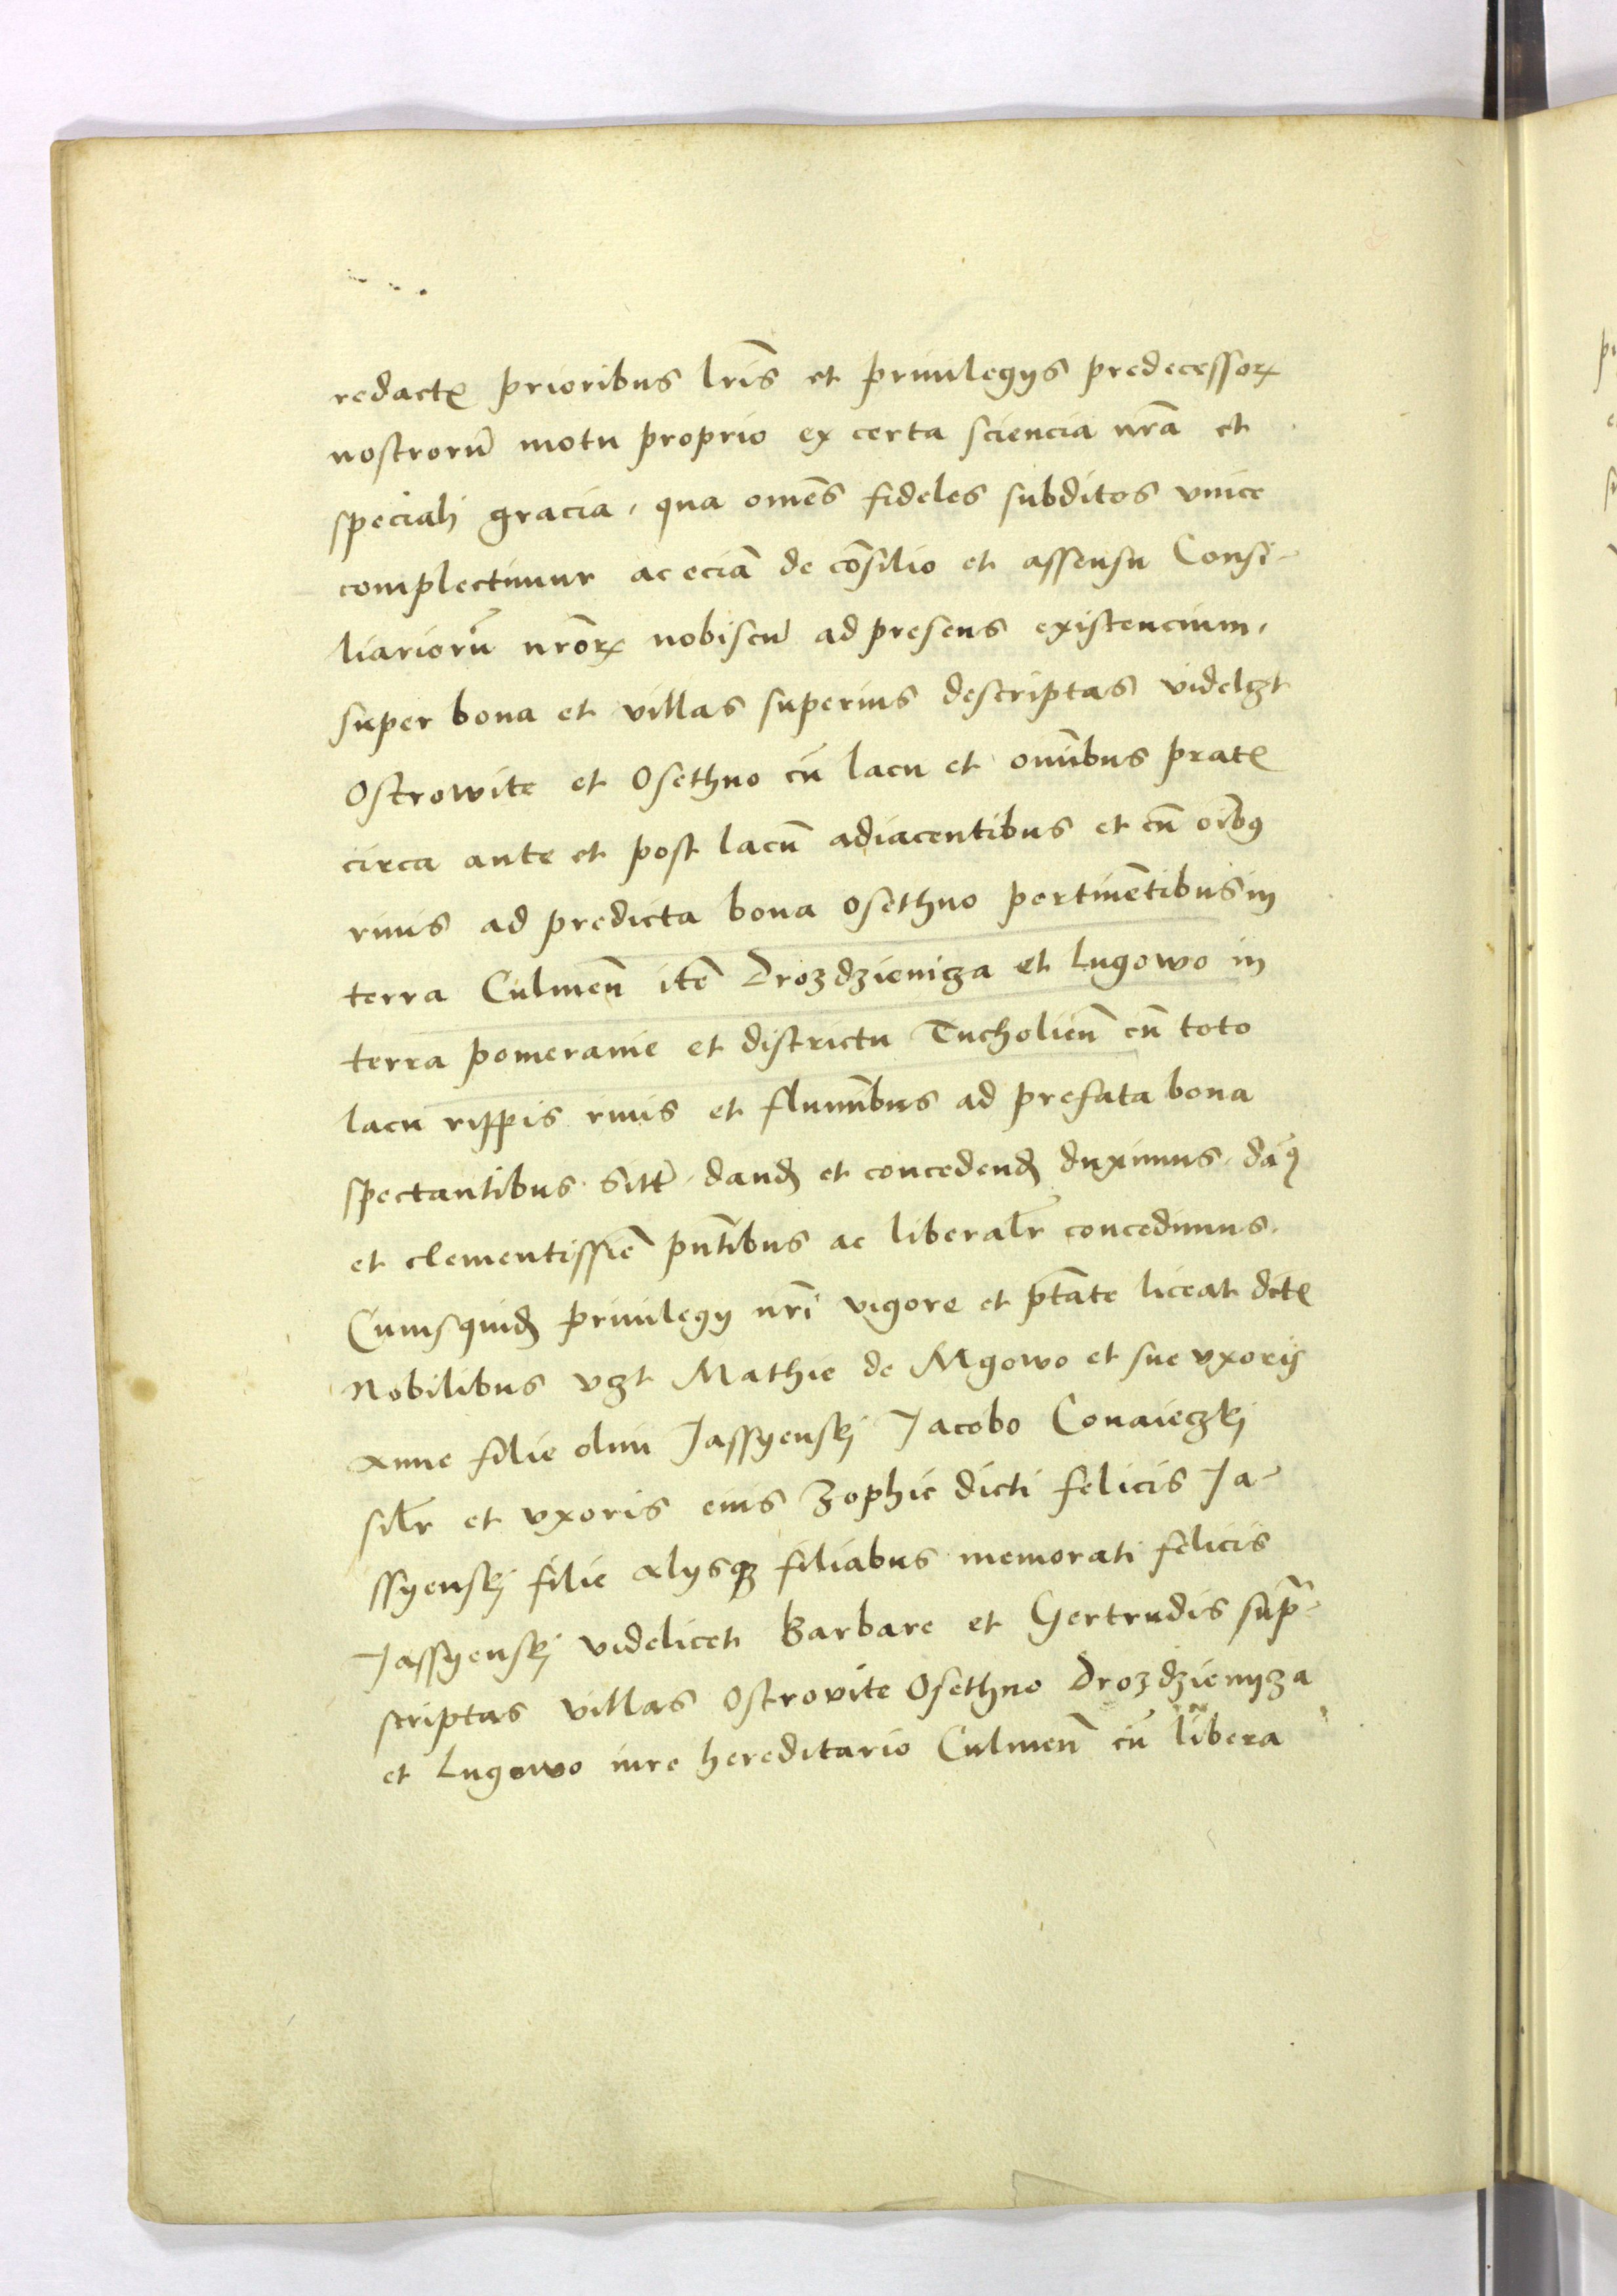 redactꝭ prioribus lr̃is et priuilegijs predecessoꝝ
nostrorũ motu proprio ex certa sciencia nr̃a et
speciali gracia, qua om̃es fideles subditos vnice
complectimur ac eciã de cõsilio et assensu Consi-
liariorũ nr̃oꝝ nobiscũ ad presens existencium,
super bona et villas superius descriptas videlꝫt
Ostrowite et Osethno cũ lacu et om̃ibus pratꝭ
circa ante et post lacũ adiacentibus et cũ oĩbꝰ
riuis ad predicta bona Osethno pertinẽtibus in
terra Culmeñ itẽ Drozdzienicza et Lugowo in
terra pomeranie et districtu Tucholieñ cũ toto
lacu rippis riuis et flumĩbus ad prefata bona
spectantibus. Sitt̃. dandꝭ et concedendꝭ duximus. dãꝰ
et clementissiẽ pñtibus ac liberalr̃ concedimus.
Cuiusquidꝭ priuilegij nr̃i vigore et ptãte liceat dc̃tꝭ
Nobilibus vꝫt Mathie de Mgowo et sue vxoris
Anne filie olim Jassyenskj Jacobo Conaieczkj
silr̃ et vxoris eius Zophie dicti felicis Ja-
ssyenskj filie Alijsqꝫ filiabus memorati felicis
Jassyenskj videlicet Barbare et Gertrudis supra-
scriptas villas Ostrovite Osethno Drozdzienycza
et Lugowo iure hereditario Culmeñ cũ libera